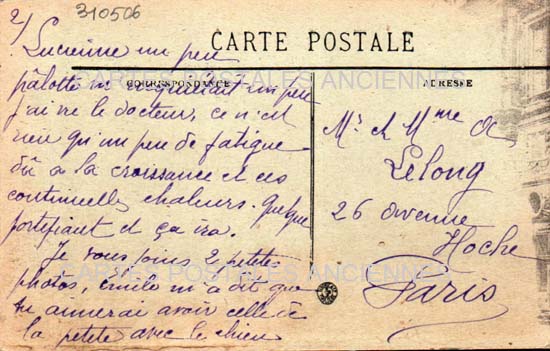 2/
310506
CARTE POSTALE
CORRESPONDANCE
ADRESSE
CARTES POSTALES ANCIENNES
Lucienne un peu
pâlotte m'inquiétait un peu
j'ai vu le docteur, ce n'est
rien qu'un peu de fatigue
dû à la croissance et ces
continuelles chaleurs. quelque
fortifiant et ça ira.
Je vous joins 2 petites
photos, émile m'a dit que
tu aimerai avoir celle de
la petite avec le chien
Mr et Mme de
Lelong
26 avenue
Hoche
Paris
CARTES POSTALES ANCIENNES